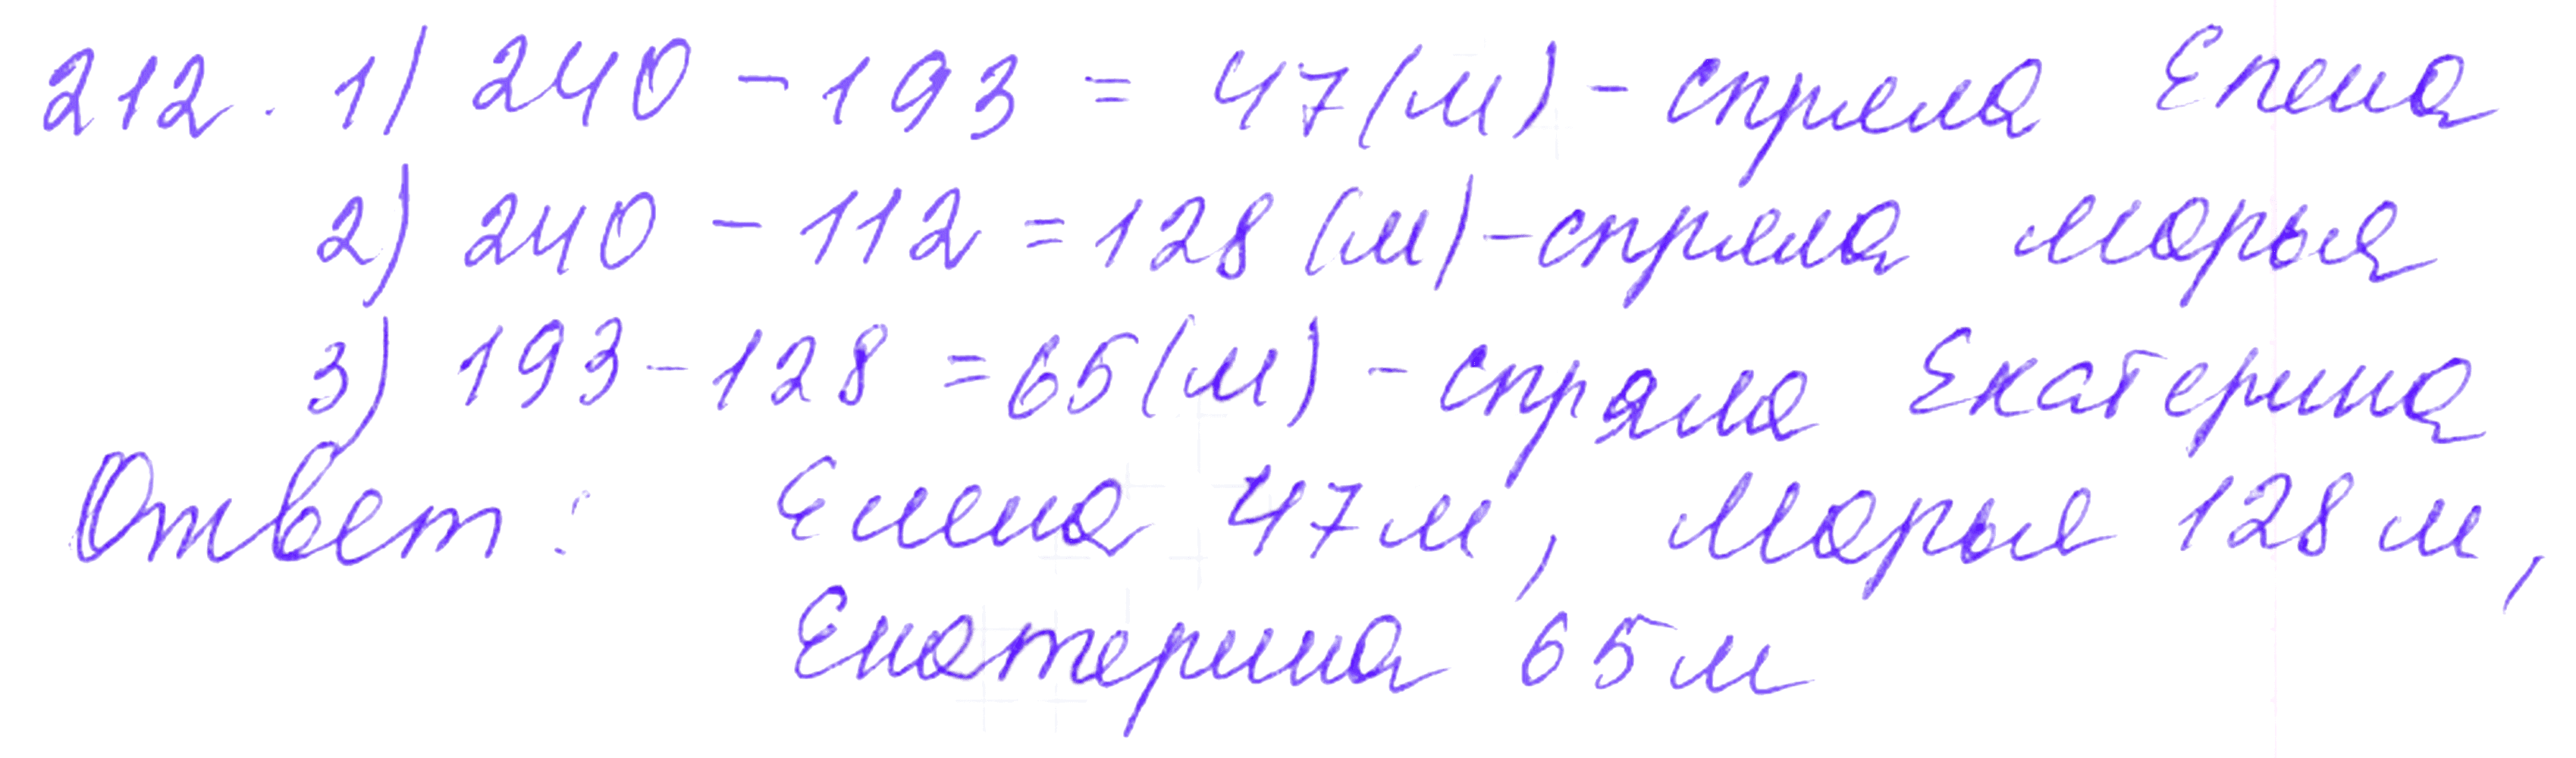 212. 1) 240 - 193 = 47 (м) - спряла Елена
2) 240 - 112 = 128 (м) - спряла Марья
3) 193 - 128 = 65 (м) - спряла Екатерина
Ответ: Елена 47 м, Марья 128 м,
Екатерина 65 м